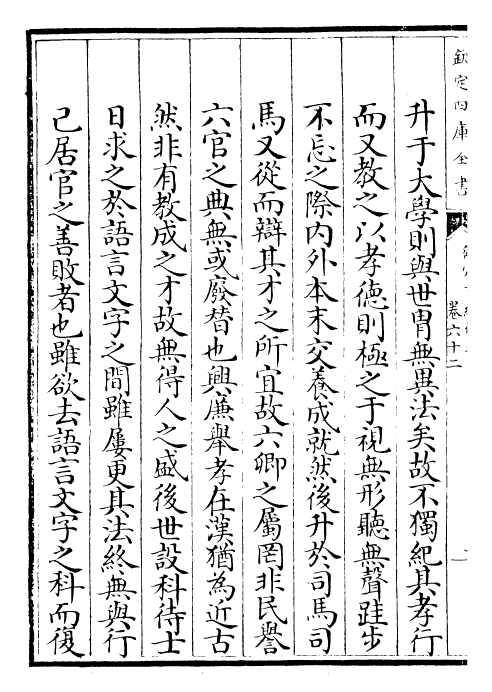 欽定四庫全書
卷六十二
升于大學則與世胄無異法矣故不獨紀其孝行
而又教之以孝徳則極之于視無形聽無聲跬步
不忘之際内外本末交養成就然後升於司馬司
馬又從而辯其才之所宜故六卿之屬罔非民譽
六官之典無或廢替也興廉舉孝在漢猶為近古
然非有教成之才故無得人之盛後世設科待士
日求之於語言文字之間雖屢更其法終無與行
己居官之善敗者也雖欲去語言文字之科而復